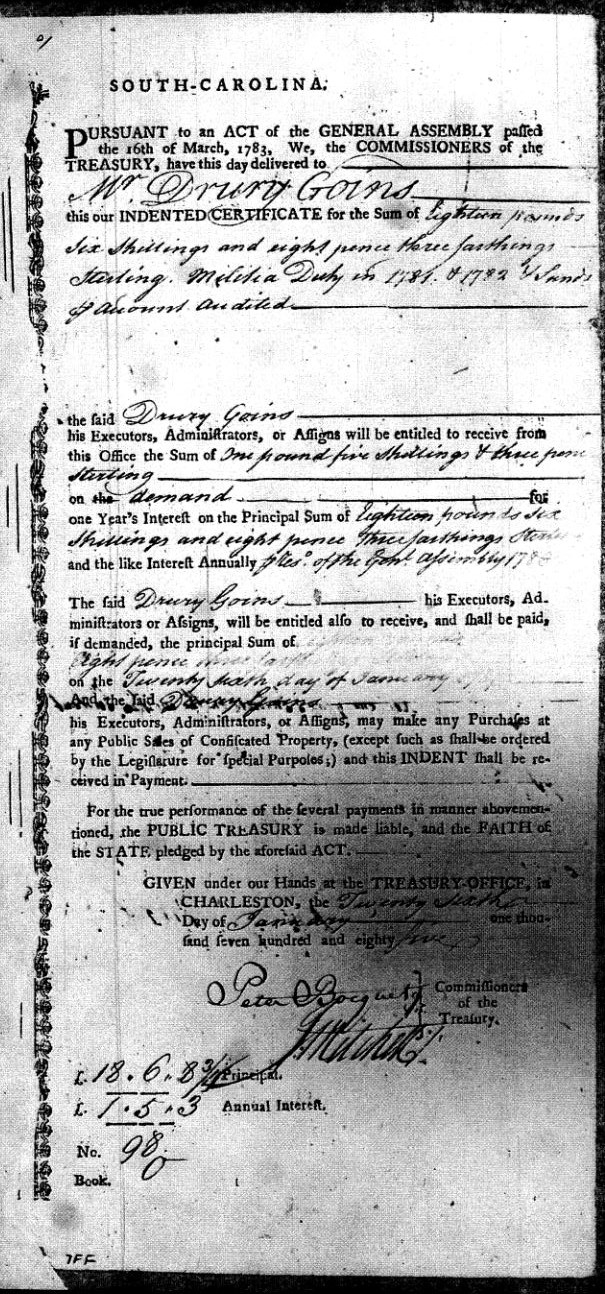 SOUTH-CAROLINA.
PURSUANT to an ACT of the GENERAL ASSEMBLY paſſed
the 16th of March, 1783, We, the COMMISSIONERS of the
TREASURY, have this day delivered to
Mr. Drury Goins
this our INDENTED CERTIFICATE for the Sum of Eighteen pounds
Six Shillings and eight pence three farthings
Sterling. Militia Duty in 1781. & 1782
Account Audited
the said Drury Goins
his Executors, Adminiſtrators, or Aſſigns will be entitled to receive from
this Office the Sum of One pound five Shillings & three pence
Sterling
on the demand for
one Year's Intereſt on the Principal Sum of Eighteen pounds Six
Shillings and eight pence Three farthings
and the like Intereſt Annually ℘ Reſo. of the Genl. Aſſembly
The ſaid Drury Goins his Executors, Ad-
miniſtrators or Aſſigns, will be entitled alſo to receive, and ſhall be paid,
if demanded, the principal Sum of
Eight pence three
on the Twenty Sixth day of January
And the ſaid Drury Goins
his Executors, Adminiſtrators, or Aſſigns, may make any Purchaſes at
any Public Sales of Confiſcated Property, (except ſuch as ſhall be ordered
by the Legiſlature for ſpecial Purpoſes;) and this INDENT ſhall be re-
ceived in Payment.
For the true performance of the ſeveral payments in manner abovemen-
tioned, the PUBLIC TREASURY is made liable, and the FAITH of
the STATE pledged by the aforeſaid ACT.
GIVEN under our Hands at the TREASURY-OFFICE, in
CHARLESTON, the Twenty Sixth
Day of January one thou-
ſand ſeven hundred and eighty five
Peter Bocquet Commiſſioners
of the
Treaſury.
Mitchell
£. 18.6.8¾ Principal.
£. 1.5.3 Annual Intereſt.
No. 98
Book.
7FF